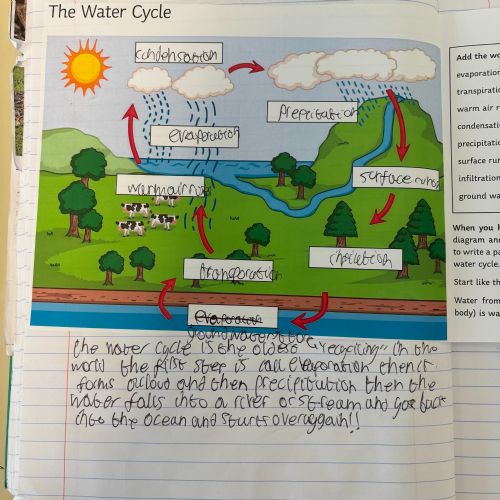 The Water Cycle
condensation
precpitation
evaporation
warm air
surface
transporation
evaporation
groundwater
Add the wo
evaporation
transpiratio
warm air r
condensati
precipitatio
surface rur
infiltration
ground wa
When you h
diagram an
to write a pa
water cycle.
Start like th
Water from
body) is wa
the water cycle is the oldest "recycling" in the
world the first step is call evaporation then it
forms a cloud and then precipitation then the
water falls into a river or stream and back
into the ocean and starts over again!!